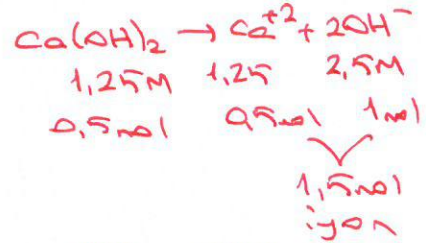 Ca(OH)₂ → Ca⁺² + 2OH⁻
1,25M 1,25 2,5M
0,5mol 0,5mol 1mol
1,5mol
iyon